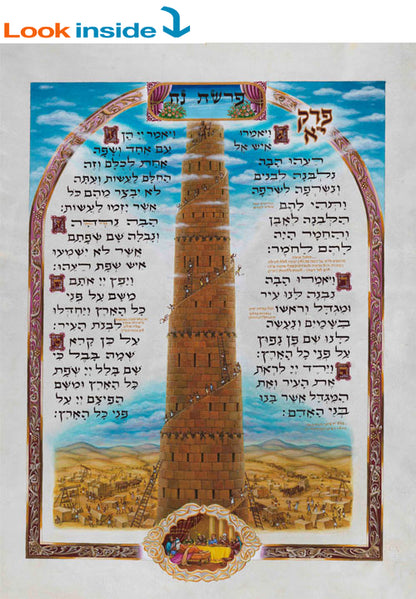 Look inside
פרשת נח
פרק
י"א
ויאמרו
איש אל
רעהו הבה
נלבנה לבנים
ונשרפה לשרפה
ותהי להם
הלבנה לאבן
והחמר היה
להם לחמר:
ויאמרו הבה
נבנה לנו עיר
ומגדל וראשו
בשמים ונעשה
לנו שם פן נפוץ
על פני כל הארץ:
וירד יי לראת
את העיר ואת
המגדל אשר בנו
בני האדם:
ויאמר יי הן
עם אחד ושפה
אחת לכלם וזה
החלם לעשות ועתה
לא יבצר מהם כל
אשר יזמו לעשות:
הבה נרדה
ונבלה שם שפתם
אשר לא ישמעו
איש שפת רעהו:
ויפץ יי אתם
משם על פני
כל הארץ ויחדלו
לבנת העיר:
על כן קרא
שמה בבל כי
שם בלל יי שפת
כל הארץ ומשם
הפיצם יי על
פני כל הארץ: